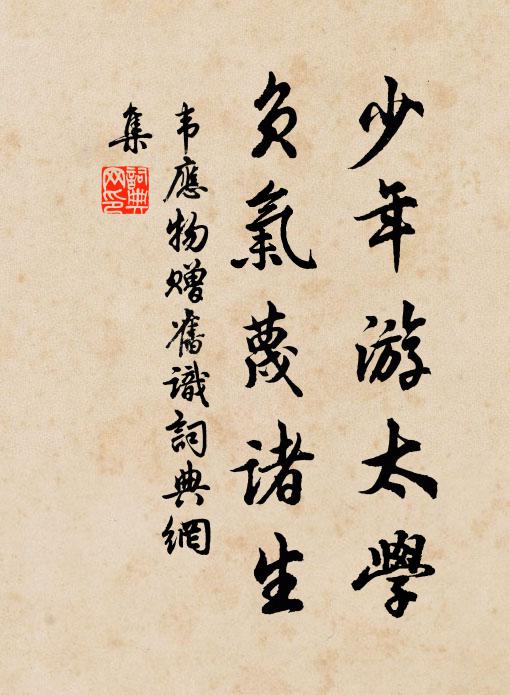 少年游太學
負氣蔑諸生
韦應物赠舊識詞典網
集
詞典網印